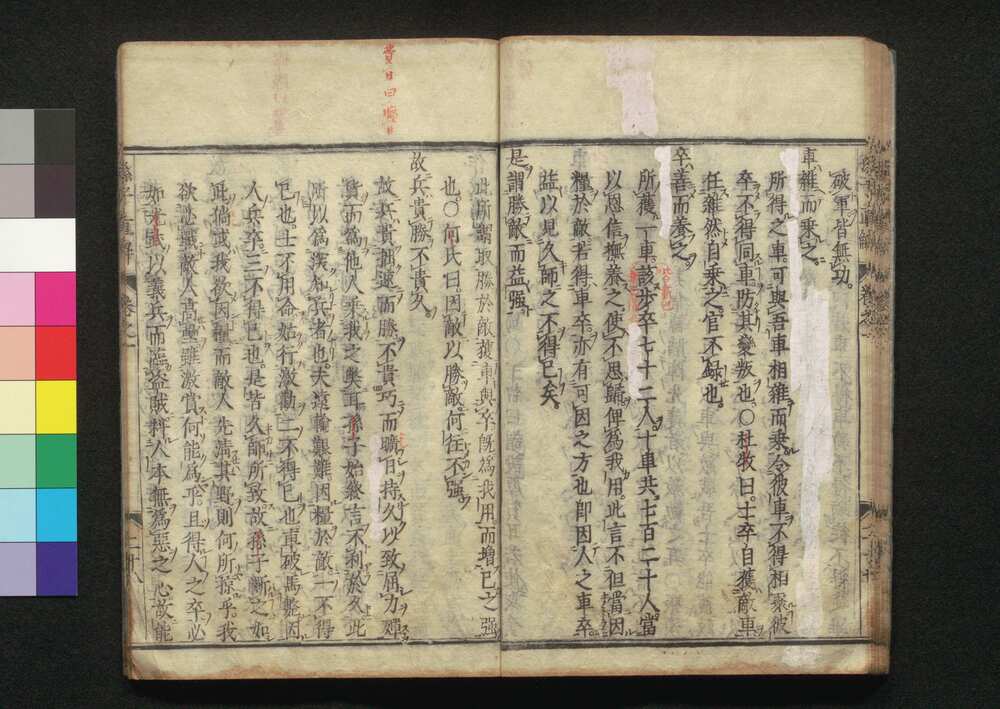 破軍皆無功。
車雜而乘之。
所得之車可與吾車相雜而乘。令彼車不得相聚。彼
卒不得同車。防其變叛也。〇杜牧曰。士卒自獲敵車
任雜然自乘之。官不録也。
卒善而養之。
所獲一車。該步卒七十二人。十車共七百二十人。當
以恩信撫養之。使不思歸。俾為我用。此言不但因
糧於敵。若得車卒。亦有可因之方也。卽因人之車卒
益。以見久師之不得已矣。
是謂勝敵而益强。
此所謂取勝於敵。獲車與卒。既為我用。而增已之强
也。〇何氏曰。因敵以勝敵。何往不强。
故兵貴勝。不貴久。
故兵貴拙速而勝。不貴巧而曠日持久。以致屈力殫
貨。而為他人乘我之獘耳。孫子始終言不利於久。此
所以為深知兵者也。夫遠輸艱難。因糧於敵。一不得
已也。士不用命。始行激勸。二不得已也。車破馬獘。因
人兵卒。三不得已也。是皆久師所致。故孫子斷之。如
此。倘或我欲因糧。而敵人先清其野。則何所掠乎。我
欲激賞。敵人高壘。雖激賞何能為乎。且得人之卒。必
以義兵而臨盗賊。料人本無為惡之心。故能
費日曰曠日